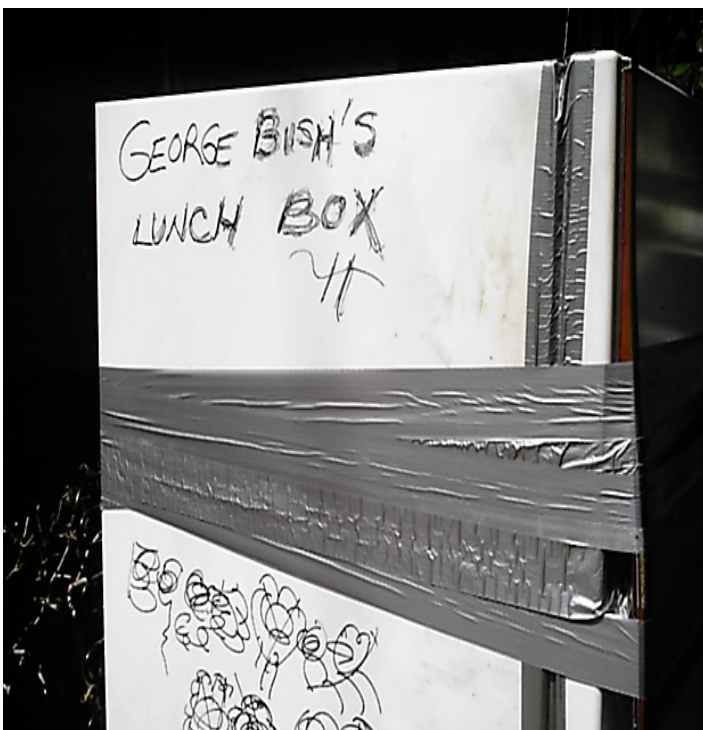 GEORGE BUSH'S
LUNCH BOX